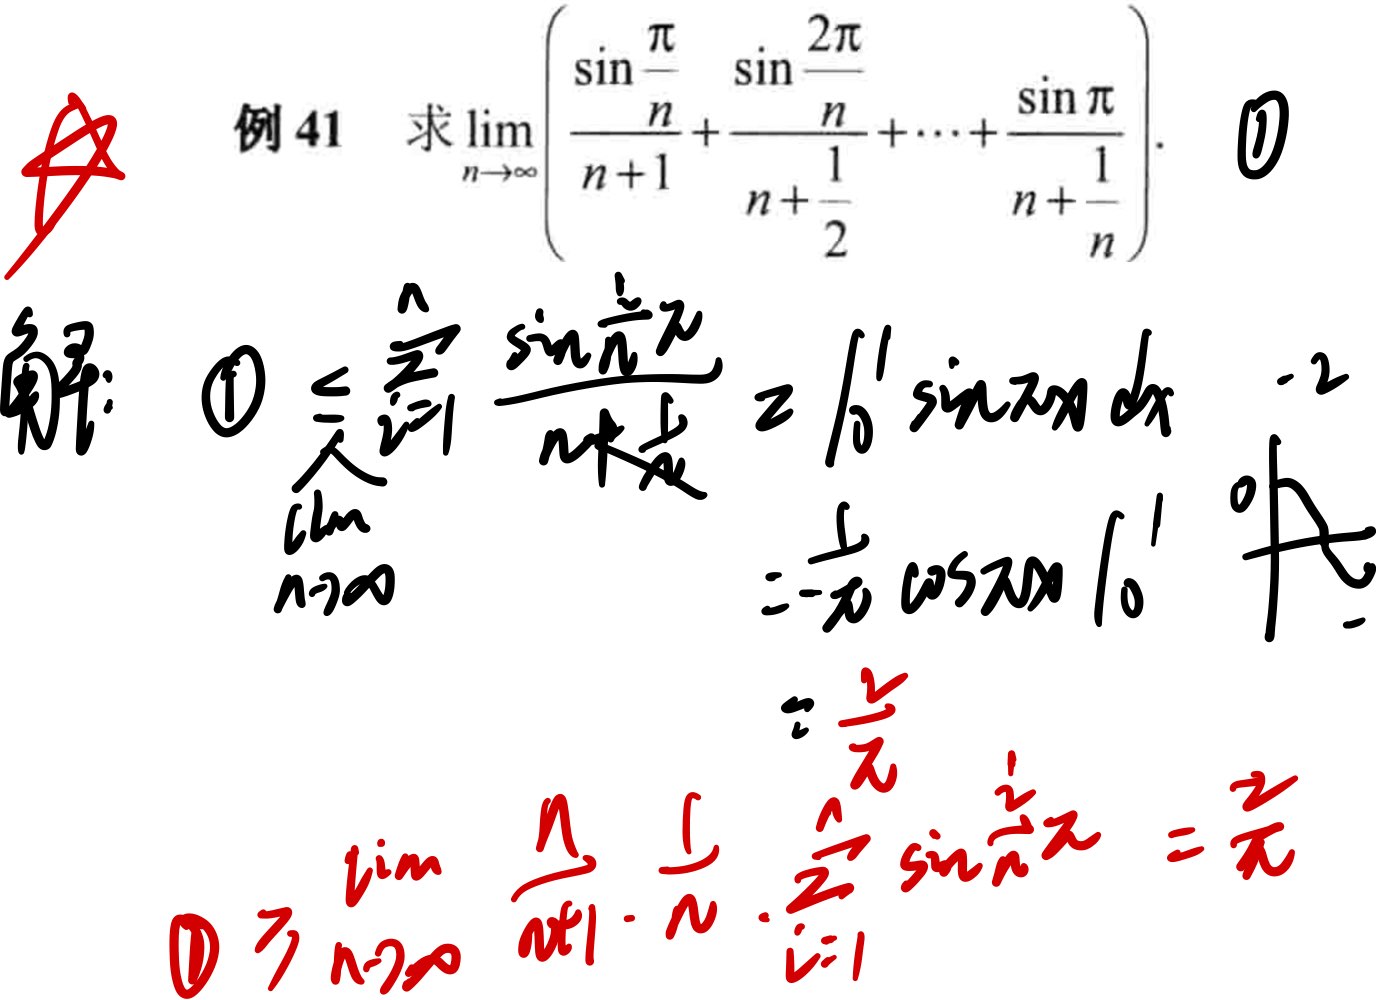 例 41 求 lim_{n→∞} ( sin(π/n)/(n+1) + sin(2π/n)/(n+1/2) + ⋯ + sin π/(n+1/n) ). ①
解: ① ≤ lim_{n→∞} ∑_{i=1}^{n} sin(i/n)π / n+1/n = ∫_0^1 sinπx dx -2
= -1/π cosπx |_0^1 0 -
= 2/π
① ≥ lim_{n→∞} n/(n+1) · 1/n · ∑_{i=1}^{n} sin(i/n)π = 2/π